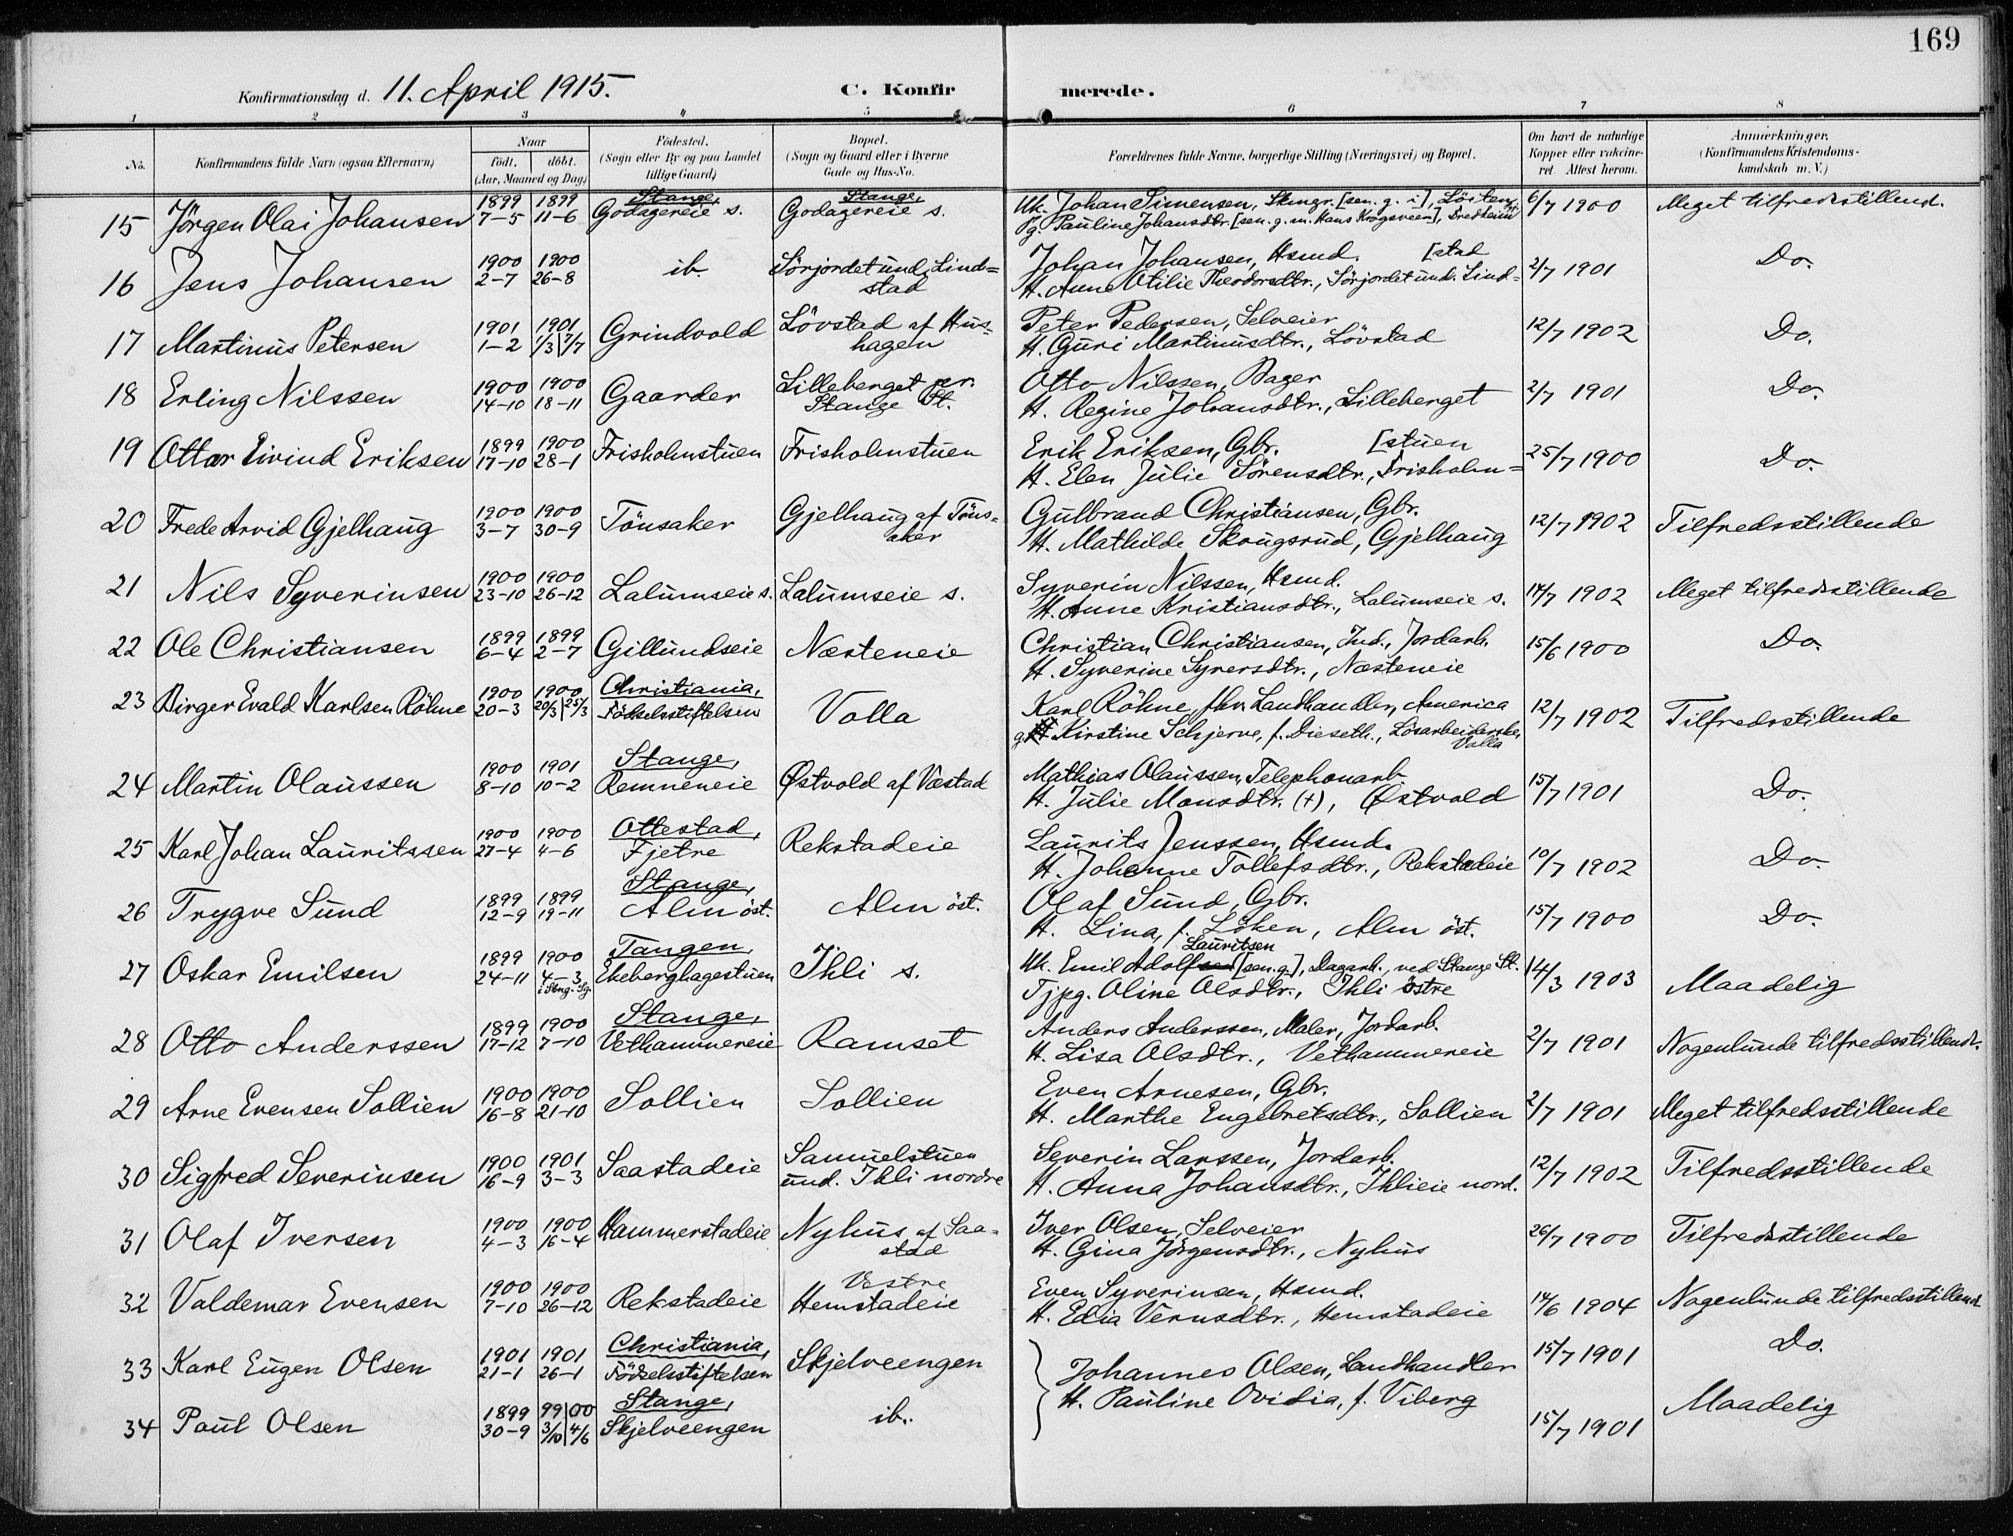 169
Konfirmationsdag d. 11. April 1915.
C. Konfirmerede.
1 2 3 4 5 6 7 8
No.
Konfirmandens fulde Navn (ogsaa Efternavn)
Naar
födt. döbt.
(Aar, Maaned og Dag)
Födested.
(Sogn eller By og paa Landet
tillige Gaard)
Bopæl.
(Sogn og Gaard eller i Byerne
Gade og Hus-No.
Forældrenes fulde Navne, borgerlige Stilling (Næringsvei) og Bopæl.
Om havt de naturlige
Kopper eller vakcine-
ret. Attest herom.
Anmærkninger.
(Konfirmandens Kristendoms-
kundskab m. V.)
15 Jörgen Olai Johansen 1899 7-5 1899 11-6 Stange, Godagereie s. Stange, Godagereie s.
Uk. Johan Simensen, [sen. g. i], Löiten,
g. Pauline Johansdtr. [sen. g. m. Hans Krogsveen],
6/7 1900 Meget tilfredsstillend.
16 Jens Johansen 1900 2-7 1900 26-8 ib. Sörjordet und. Lind=
stad
Johan Johansen, Hsmd. [stad
H. Anne Otilie Theodorsdtr., Sörjordet und. Lind=
2/7 1901 Do.
17 Martinus Petersen 1901 1-2 1901 1/3|7/7 Grindvold Lövstad af Hus-
hagen
Peter Pedersen, Selveier
H. Guri Martinusdtr., Lövstad
12/7 1902 Do.
18 Erling Nilssen 1900 14-10 1900 18-11 Gaarder Lilleberget pr.
Stange St.
Otto Nilssen, Bager
H. Regine Johansdtr., Lilleberget
2/7 1901 Do.
19 Ottar Eivind Eriksen 1899 17-10 1900 28-1 Frisholmstuen Frisholmstuen
Erik Eriksen, Gbr. [stuen
H. Elen Julie Sörensdtr., Frisholm=
25/7 1900 Do.
20 Frede Arvid Gjelhaug 1900 3-7 1900 30-9 Tönsaker Gjelhaug af Töns-
aker
Gulbrand Christiansen, Gbr.
H. Mathilde Skougsrud, Gjelhaug
12/7 1902 Tilfredsstillende
21 Nils Syverinsen 1900 23-10 1900 26-12 Lalumseie s. Lalumseie s.
Syverin Nilssen, Hsmd.
H. Anne Kristiansdtr., Lalumseie s.
14/7 1902 Meget tilfredsstillende
22 Ole Christiansen 1899 6-4 1899 2-7 Gillundseie Næsteneie
Christian Christiansen, Ind., Jordarb.
H. Syverine Syversdtr., Næsteneie
15/6 1900 Do.
23 Birger Evald Karlsen Röhne 1900 20-3 1900 20/3|25/3 Christiania, Födselsstiftelsen Volla
Karl Röhne, fhv. Landhandler, America
g. Kirstine Schjerve, f. Dieseth., Lösarbeiderske,
Volla
12/7 1902 Tilfredsstillende
24 Martin Olaussen 1900 8-10 1901 10-2 Stange, Remneneie Østvold af Væstad
Mathias Olaussen, Telephonarb.
H. Julie Monsdtr. (+), Østvold
15/7 1901 Do.
25 Karl Johan Lauritssen 1900 27-4 1900 4-6 Ottestad, Fjetre Rekstadeie
Laurits Jenssen, Hsmd.
H. Johanne Tollefsdtr., Rekstadeie
10/7 1902 Do.
26 Trygve Sund 1899 12-9 1899 19-11 Stange, Alm öst. Alm öst.
Olaf Sund, Gbr.
H. Lina, f. Löken, Alm öst.
15/7 1900 Do.
27 Oskar Emilsen 1899 24-11 1900 4-3 i Stng. Sg. Tangen, Ekeberghagestuen Ihli s.
Lauritsen
Uk. Emil Adolfsen [sen. g.], Dagarb., ved Stange St.
Tjpg. Oline Olsdtr., Ihli östre
14/3 1903 Maadelig
28 Otto Anderssen 1899 17-12 1900 7-10 Stange, Vethammereie Ramset
Anders Anderssen, Maler, Jordarb.
H. Lisa Olsdtr., Vethammereie
2/7 1901 Nogenlunde tilfredsstillende.
29 Arne Evensen Sollien 1900 16-8 1900 21-10 Sollien Sollien
Even Arnesen, Gbr.
H. Marthe Engebretsdtr., Sollien
2/7 1901 Meget tilfredsstillende
30 Sigfred Severinsen 1900 16-9 1901 3-3 Saastadeie Samuelstuen
und. Ihli nordre
Severin Larssen, Jordarb.
H. Anna Johansdtr., Ihlieie nord.
12/7 1902 Tilfredsstillende
31 Olaf Iversen 1900 4-3 1900 16-4 Hammerstadeie Nyhus af Saa-
stad
Iver Olsen, Selveier
H. Gina Jörgensdtr., Nyhus
26/7 1900 Tilfredsstillende
32 Valdemar Evensen 1900 7-10 1900 26-12 Rekstadeie Vestre
Hemstadeie
Even Syverinsen, Hsmd.
H. Edia Vernsdtr., Hemstadeie
14/6 1904 Nogenlunde tilfredsstillend
33 Karl Eugen Olsen 1901 21-1 1901 26-1 Christiania, Födselsstiftelsen Skjelveengen
Johannes Olsen, Landhandler
H. Pauline Ovidia, f. Viberg
15/7 1901 Do.
34 Paul Olsen 1899 30-9 99|00 3/10|4/6 Stange, Skjelveengen ib.
15/7 1901 Maadelig